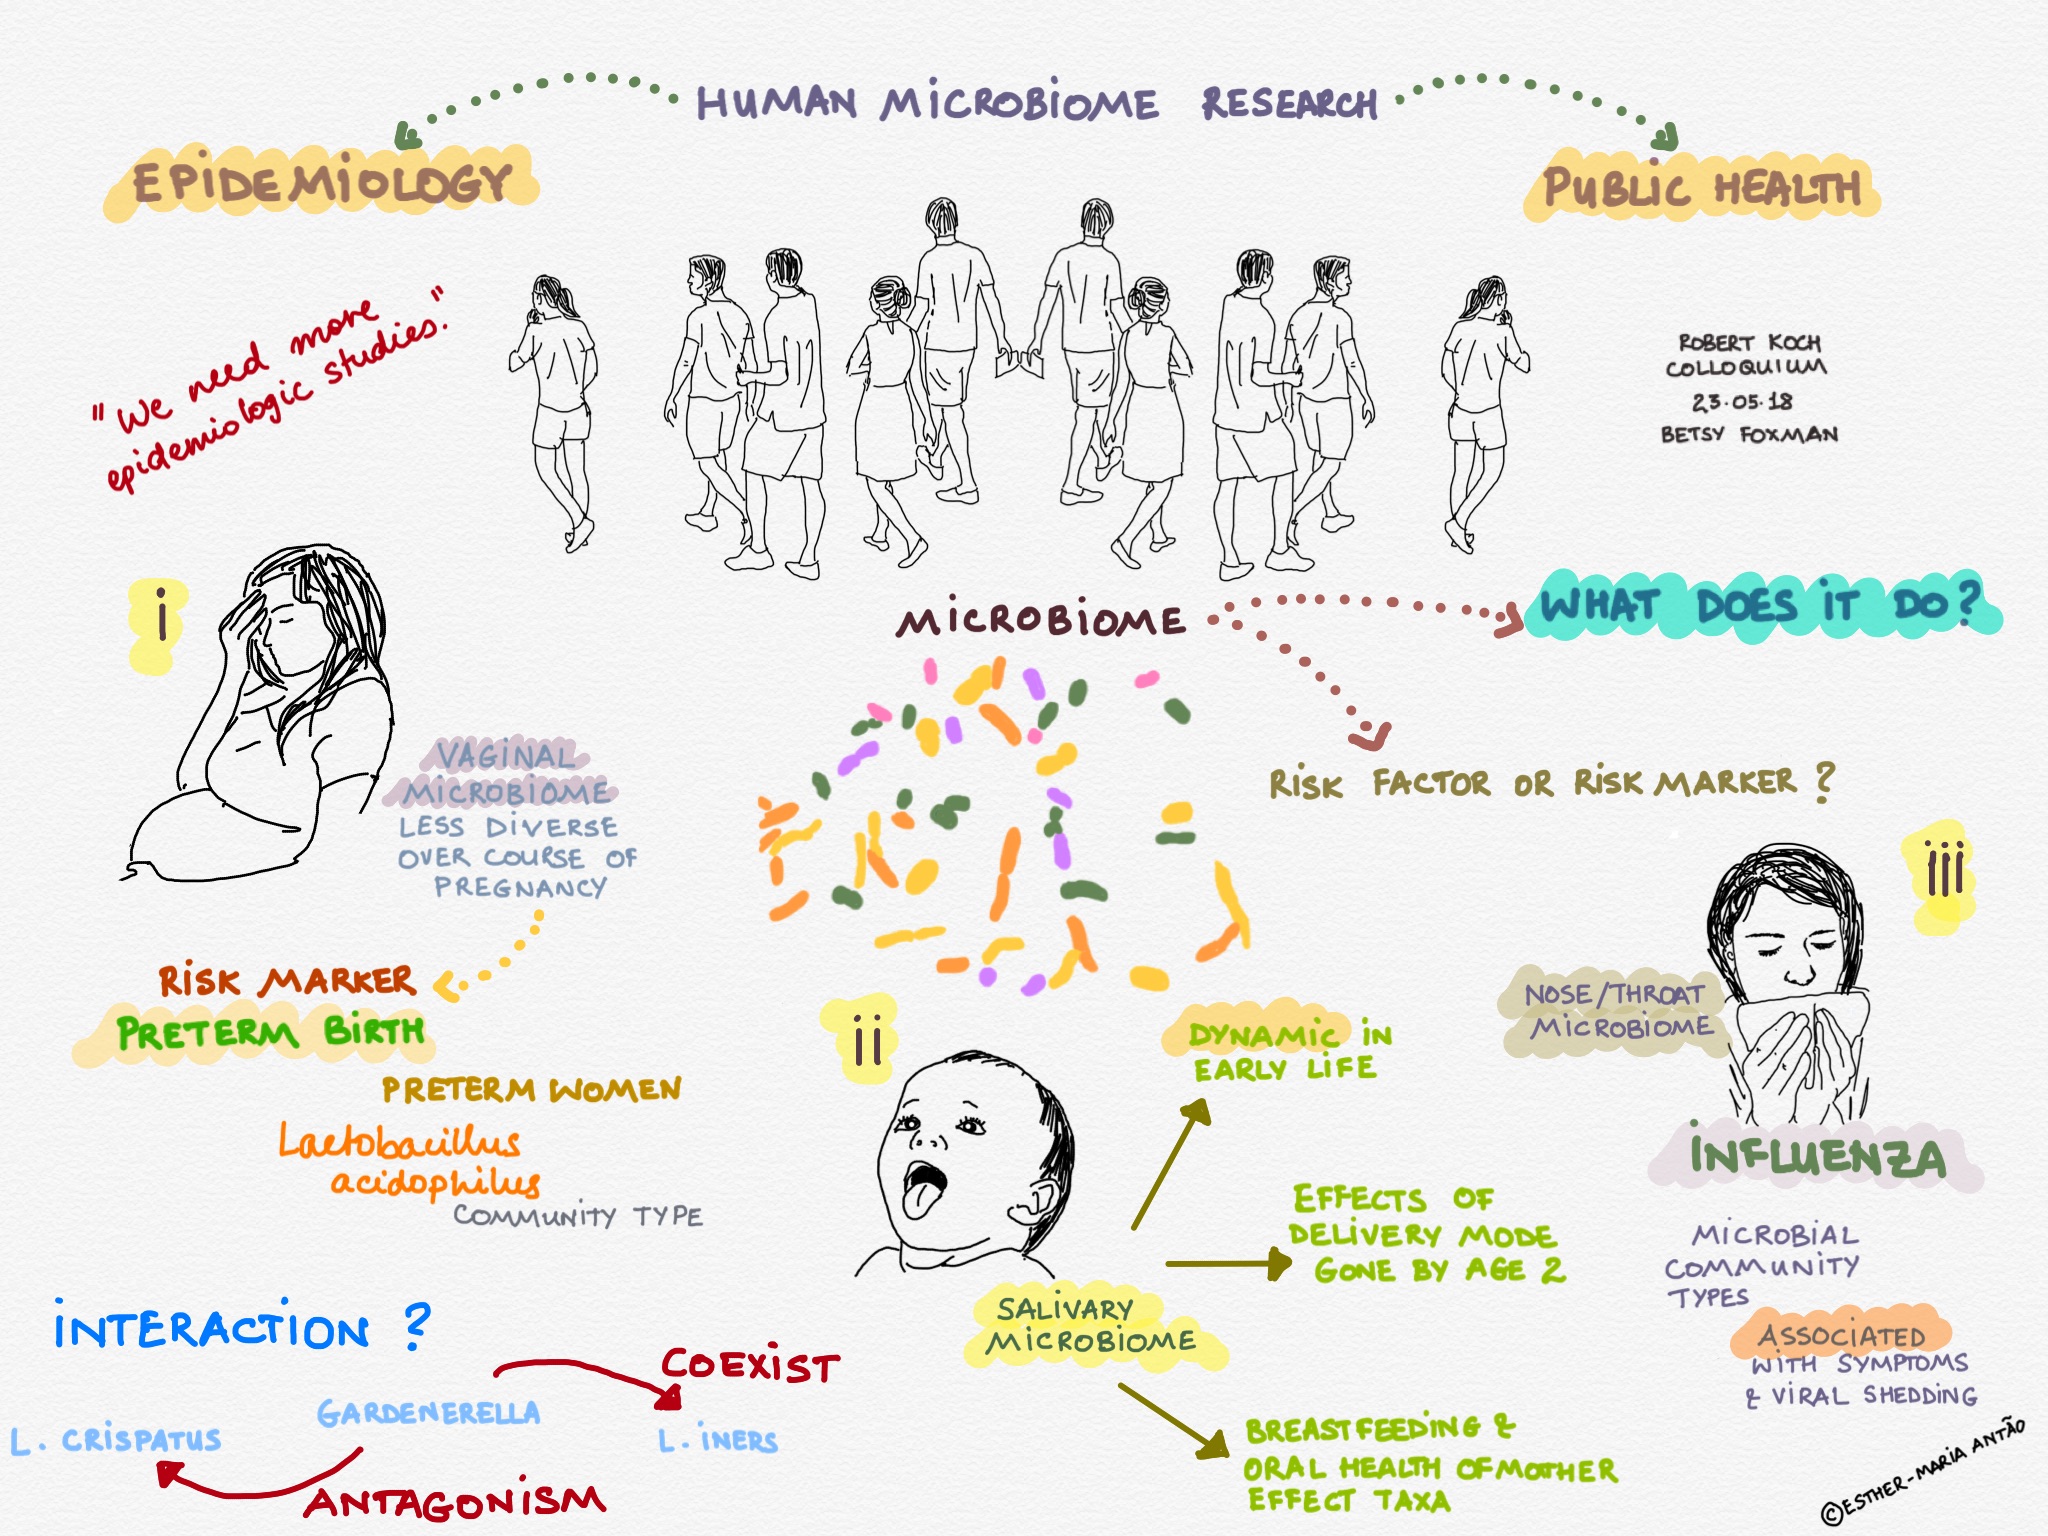 HUMAN MICROBIOME RESEARCH
EPIDEMIOLOGY
PUBLIC HEALTH
"We need more
epidemiologic studies."
ROBERT KOCH
COLLOQUIUM
23.05.18
BETSY FOXMAN
MICROBIOME
WHAT DOES IT DO?
RISK FACTOR OR RISK MARKER ?
i
VAGINAL
MICROBIOME
LESS DIVERSE
OVER COURSE OF
PREGNANCY
RISK MARKER
PRETERM BIRTH
PRETERM WOMEN
Lactobacillus
acidophilus
COMMUNITY TYPE
INTERACTION ?
COEXIST
GARDENERELLA
L. CRISPATUS
L. INERS
ANTAGONISM
ii
DYNAMIC IN
EARLY LIFE
EFFECTS OF
DELIVERY MODE
GONE BY AGE 2
SALIVARY
MICROBIOME
BREASTFEEDING &
ORAL HEALTH OF MOTHER
EFFECT TAXA
iii
NOSE/THROAT
MICROBIOME
INFLUENZA
MICROBIAL
COMMUNITY
TYPES
ASSOCIATED
WITH SYMPTOMS
& VIRAL SHEDDING
©ESTHER-MARIA ANTÃO